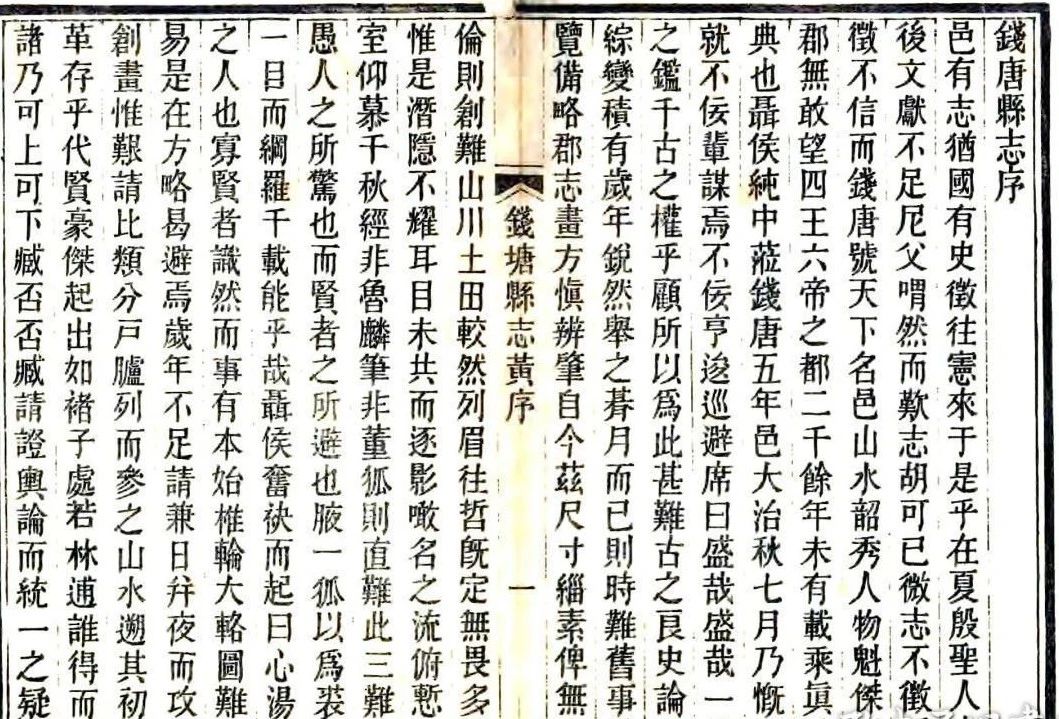 錢唐縣志序
邑有志猶國有史徵往憲來于是乎在夏殷聖人
後文獻不足尼父喟然而歎志胡可已微志不徵
徵不信而錢唐號天下名邑山水韶秀人物魁傑
郡無敢望四王六帝之都二千餘年未有載乘眞
典也聶侯純中蒞錢唐五年邑大治秋七月乃慨
就不佞輩謀焉不佞亨逡巡避席曰盛哉盛哉一
之鑑千古之權乎顧所以爲此甚難古之良史論
綜變積有歲年銳然舉之朞月而已則時難舊事
覽備略郡志畫方愼辨肇自今茲尺寸緇素俾無
錢塘縣志黃序 一
倫則創難山川土田較然列眉往哲旣定無畏多
惟是潛隱不耀耳目未共而逐影噉名之流俯慙
室仰慕千秋經非魯麟筆非董狐則直難此三難
愚人之所驚也而賢者之所避也腋一狐以爲裘
一目而綱羅千載能乎哉聶侯奮袂而起曰心湯
之人也寡賢者識然而事有本始椎輪大輅圖難
易是在方略曷避焉歲年不足請兼日幷夜而攻
創畫惟艱請比類分戸臚列而參之山水遡其初
革存乎代賢豪傑起出如褚子處若林逋誰得而
諸乃可上可下臧否否臧請證輿論而統一之疑